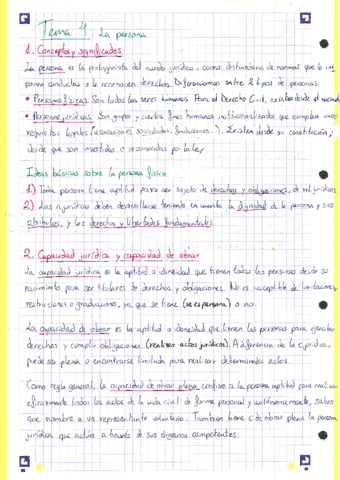 Tema 4. La persona
1. Conceptos y significados
La persona es la protagonista del mundo jurídico como destinataria de normas que le im-
ponen conductas o le reconocen derechos. Diferenciamos entre 2 tipos de personas:
• Personas físicas. Son todos los seres humanos. Para el Derecho Civil, existen desde el nacimie
• Personas jurídicas. Son grupos y ciertos fines humanos institucionalizados que cumplen unos
requisitos legales (asociaciones, sociedades, fundaciones...). Existen desde su constitución,
desde que son investidas o reconocidas por la Ley
Ideas básicas sobre la persona física
1) Toda persona tiene aptitud para ser sujeto de derechos y obligaciones, de rel. jurídicas
2) Las n. jurídicas deben desarrollarse teniendo en cuenta la dignidad de la persona y sus
atributos, y los derechos y libertades fundamentales
2. Capacidad jurídica y capacidad de obrar
La capacidad jurídica es la aptitud o idoneidad que tienen todas las personas desde su
nacimiento para ser titulares de derechos y obligaciones. No es susceptible de limitaciones,
restricciones o graduaciones, ya que se tiene (se es persona) o no.
La capacidad de obrar es la aptitud o idoneidad que tienen las personas para ejercitar
derechos y cumplir obligaciones (realizar actos jurídicos). A diferencia de la c. jurídica,
puede ser plena o encontrarse limitada para realizar determinados actos.
Como regla general, la capacidad de obrar plena, confiere a la persona aptitud para realizar
eficazmente todos los actos de la vida civil de forma personal y autónomamente, salvo
que nombre a un representante voluntario. También tiene c. de obrar plena la persona
jurídica que actúa a través de sus órganos competentes.